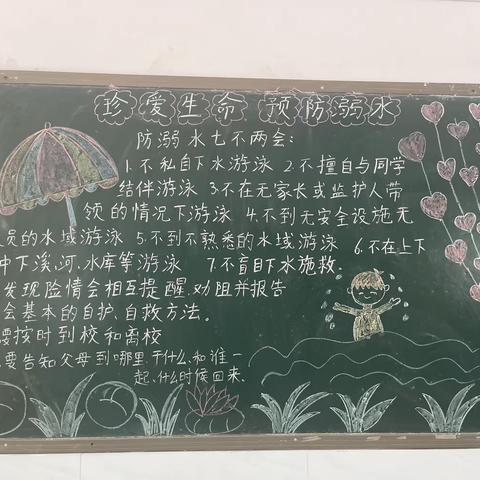 珍爱生命 预防溺水
防溺水七不两会:
1.不私自下水游泳 2.不擅自与同学
结伴游泳 3.不在无家长或监护人带
领的情况下游泳 4.不到无安全设施无
员的水域游泳 5.不到不熟悉的水域游泳 6.不在上下
中下溪、河、水库等游泳 7.不盲目下水施救.
发现险情会相互提醒、劝阻并报告
会基本的自护、自救方法。
要按时到校和离校
要告知父母到哪里、干什么、和谁一
起、什么时候回来.